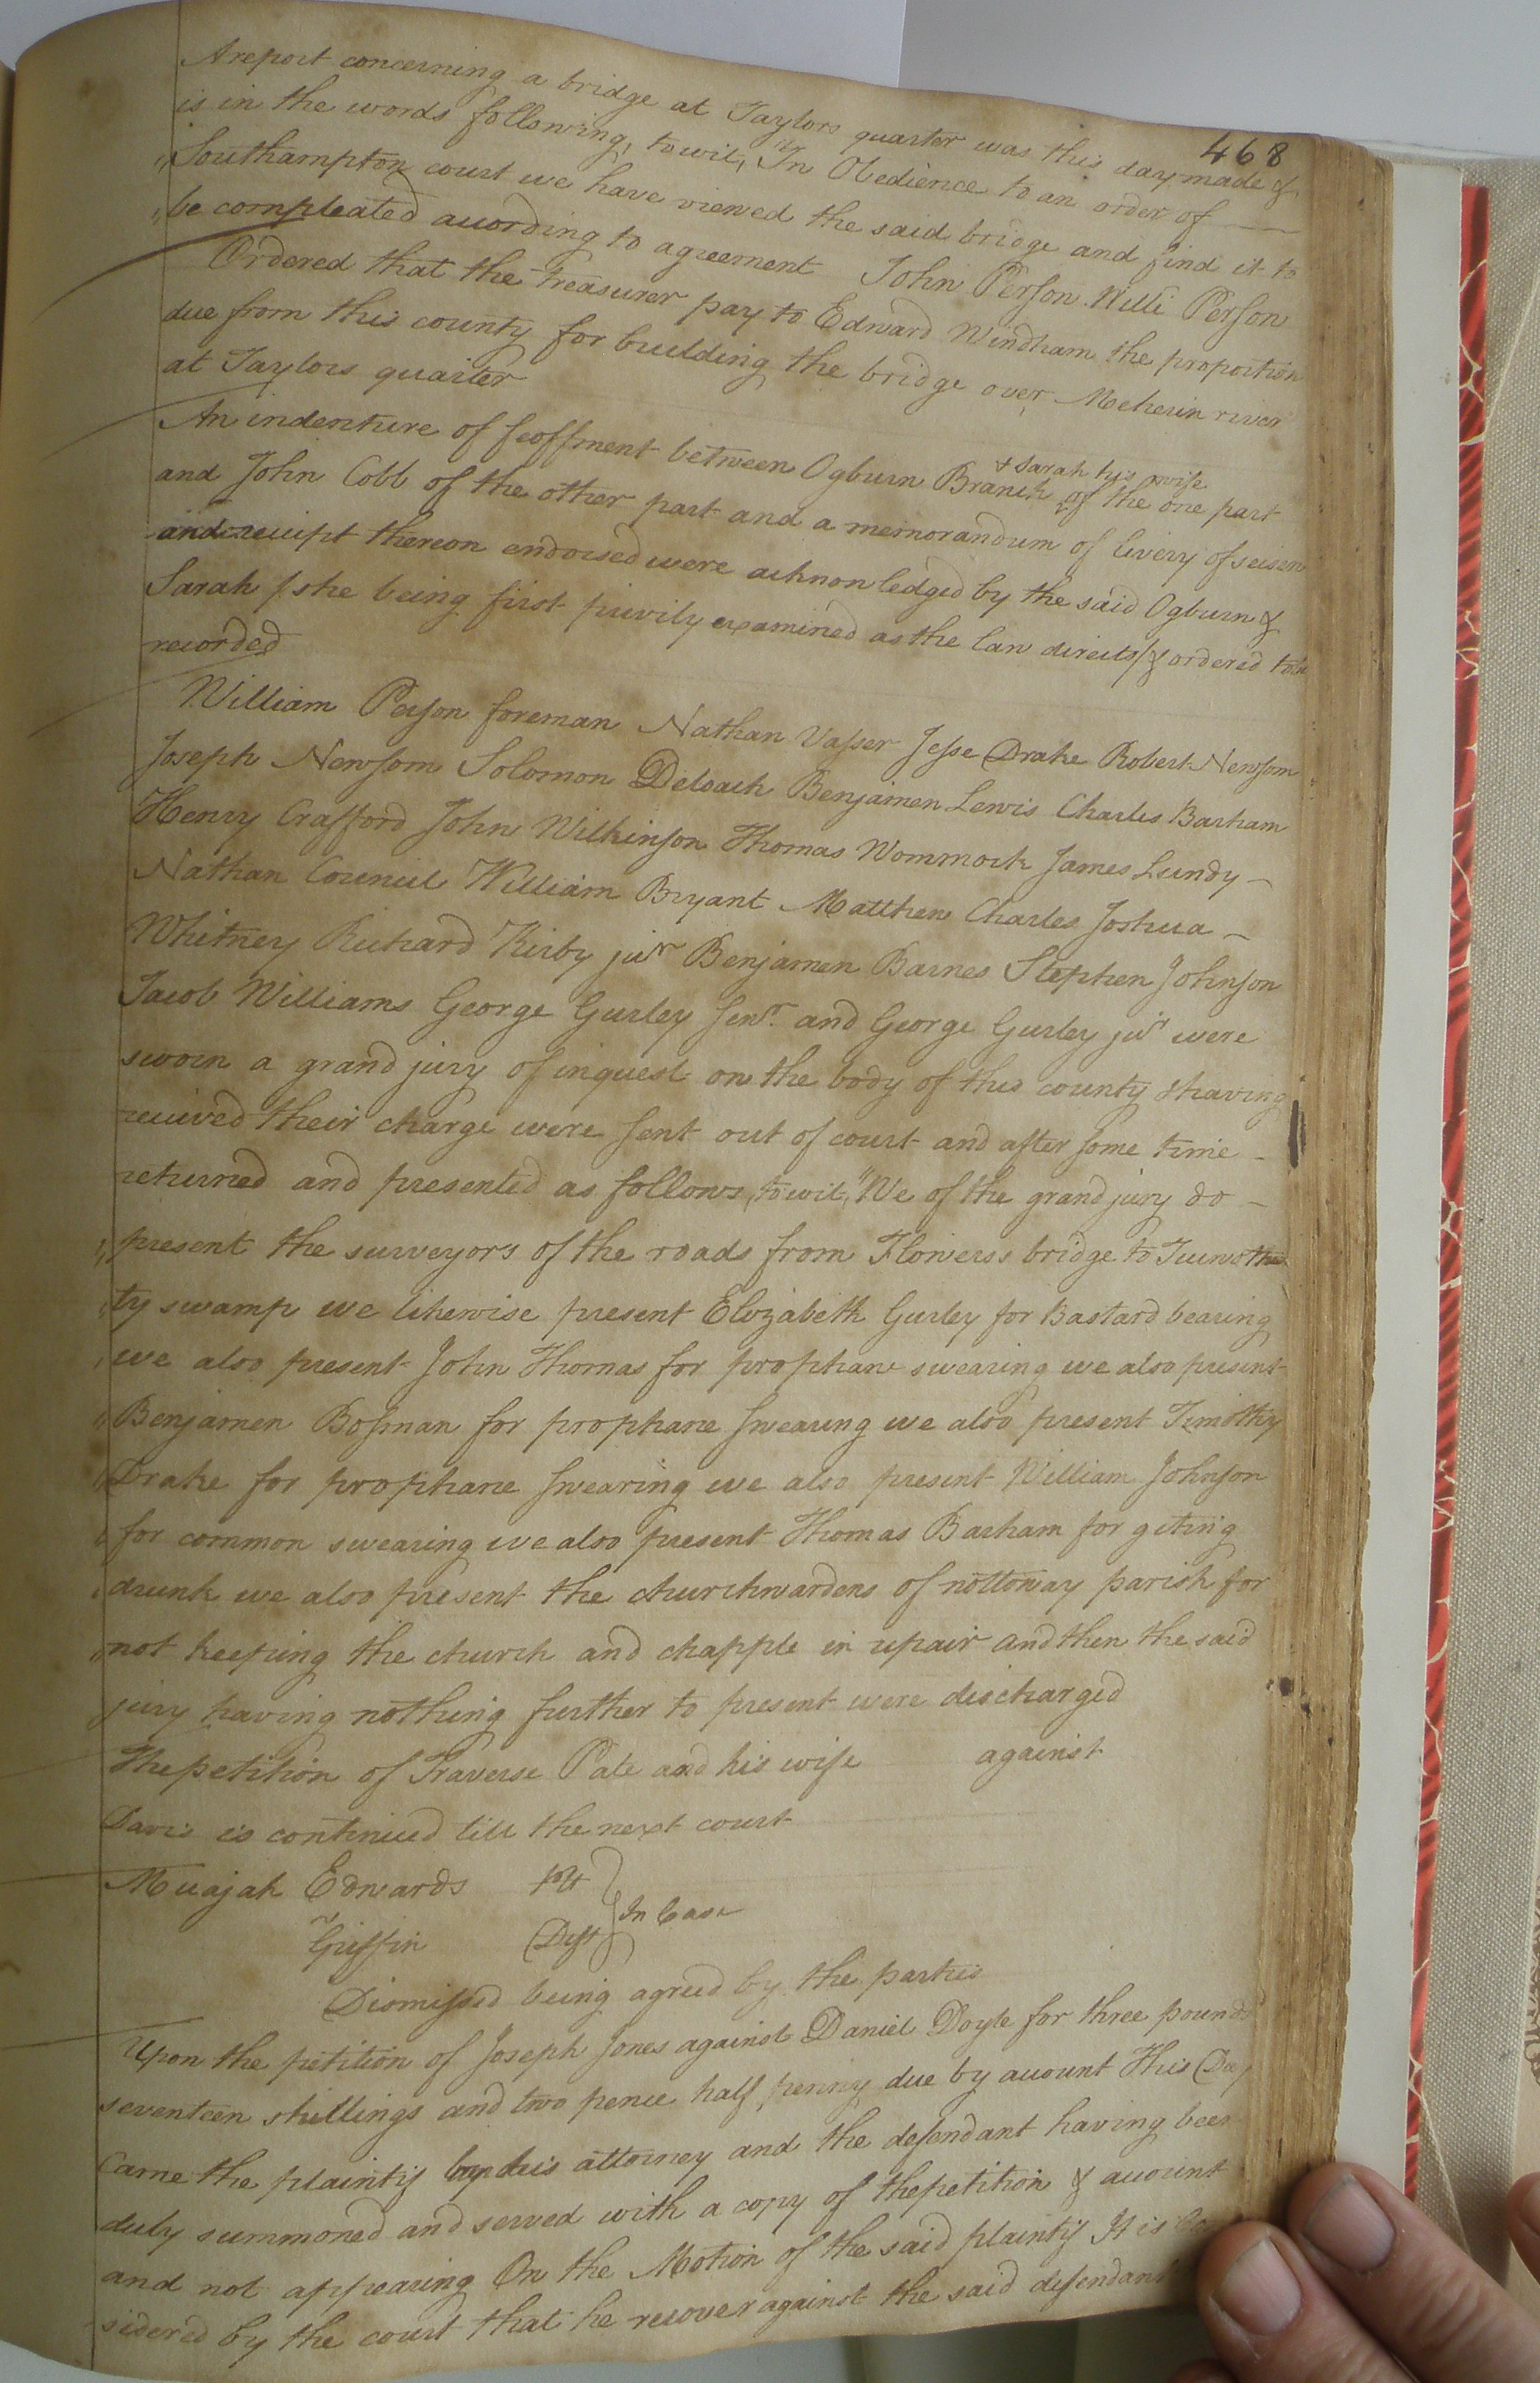 468
A report concerning a bridge at Taylors quarter was this day made &
is in the words following, to wit, "In Obedience to an order of
" Southampton court we have viewed the said bridge and find it to
" be compleated according to agreement John Person Willi Person
Ordered that the treasurer pay to Edward Windham the proportion
due from this county for building the bridge over Meherin river
at Taylors quarter
& Sarah his wife
An indenture of feoffment between Ogburn Branch of the one part
and John Cobb of the other part and a memorandum of livery of seisen
and receipt thereon endorsed were acknowledged by the said Ogburn &
Sarah /she being first privily examined as the law directs/ & ordered to be
recorded
William Person foreman Nathan Vasser Jesse Drake Robert Newsom
Joseph Newsom Solomon Deloach Benjamen Lewis Charles Barham
Henry Crafford John Wilkinson Thomas Wommock James Lundy
Nathan Council William Bryant Matthew Charles Joshua
Whitney Richard Kirby junr Benjamen Barnes Stephen Johnson
Jacob Williams George Gurley senr. and George Gurley junr were
sworn a grand jury of inquest on the body of this county & having
received their charge were sent out of court and after some time
returned and presented as follows, to wit, "We of the grand jury do
" present the surveyors of the roads from Flowerss bridge to
" ty swamp we likewise present Elizabeth Gurley for Bastard bearing
" we also present John Thomas for prophane swearing we also present
" Benjamen Bosman for prophane swearing we also present Timothy
" Drake for prophane swearing we also present William Johnson
" for common swearing we also present Thomas Barham for geting
" drunk we also present the churchwardens of nottoway parish for
" not keeping the church and chapple in repair and then the said
jury having nothing further to present were discharged
The petition of Traverse Pate and his wife against
Davis is continued till the next court
Micajah Edwards plt
vs In Case
Griffin Deft
Dismissed being agreed by the parties
Upon the petition of Joseph Jones against Daniel Doyle for three pounds
seventeen shillings and two pence half penny due by account This Day
Came the plaintif by his attorney and the defendant having been
duly summoned and served with a copy of the petition & account
and not appearing On the Motion of the said plaintif It is
sidered by the court that he recover against the said defendant